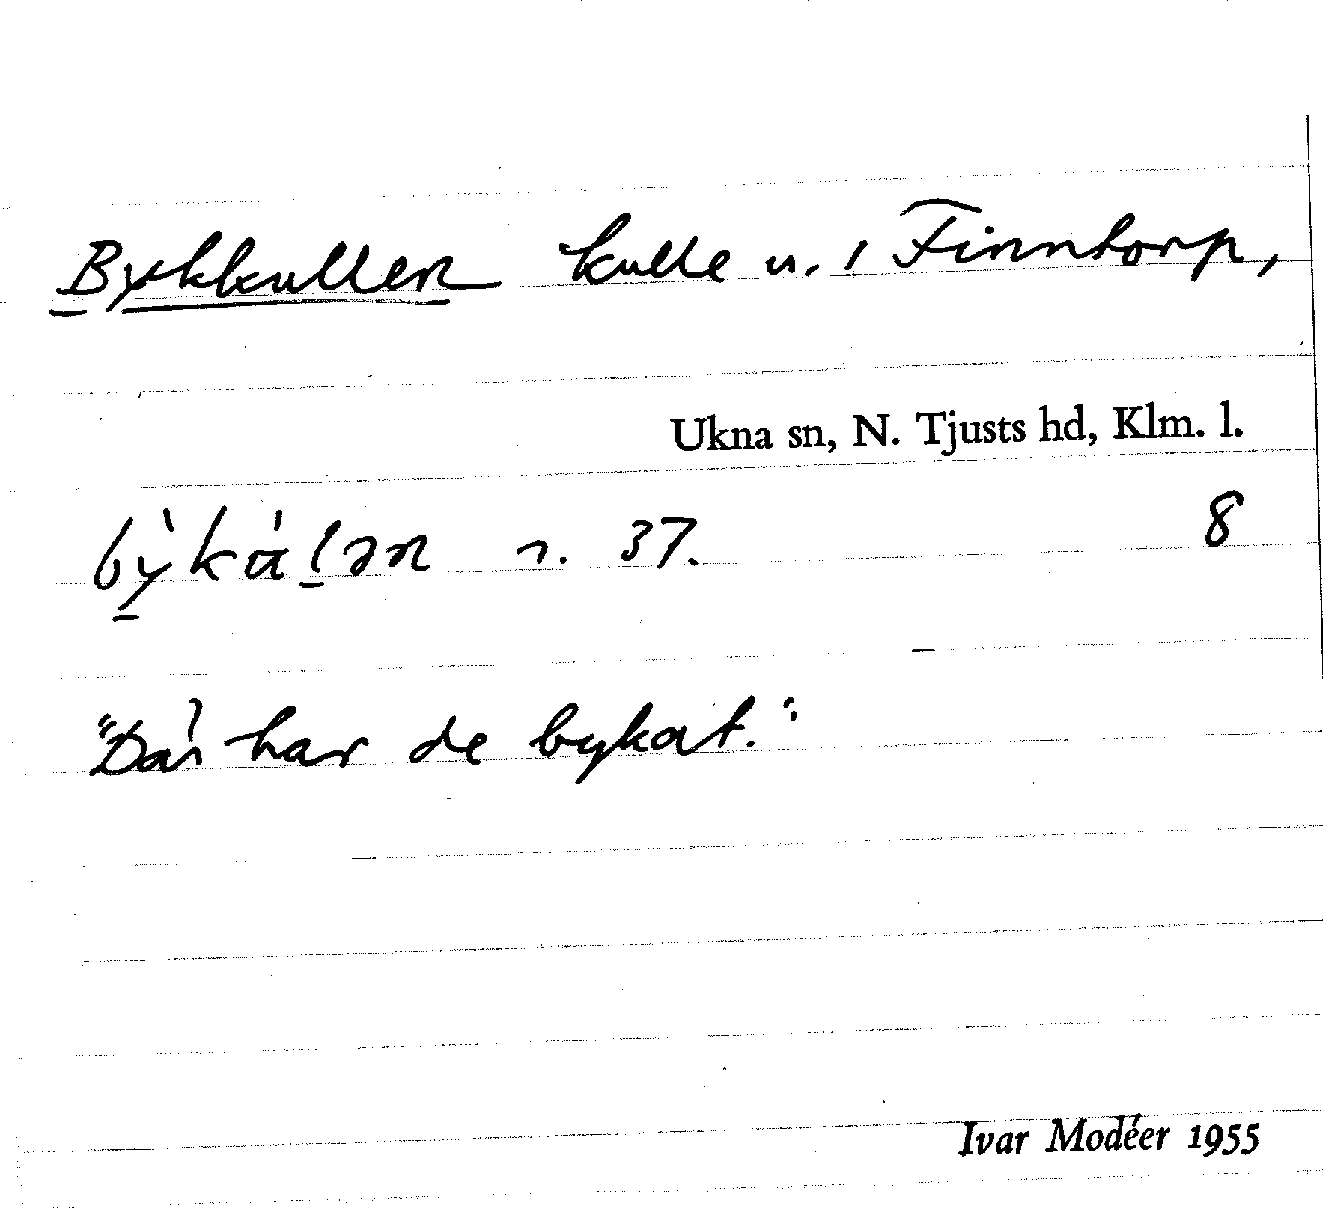 Bykkullen kulle u. 1 Finntorp,
Ukna sn, N. Tjusts hd, Klm. l.
bỳkàlən n. 37. 8
"Där har de bykat."
Ivar Modéer 1955